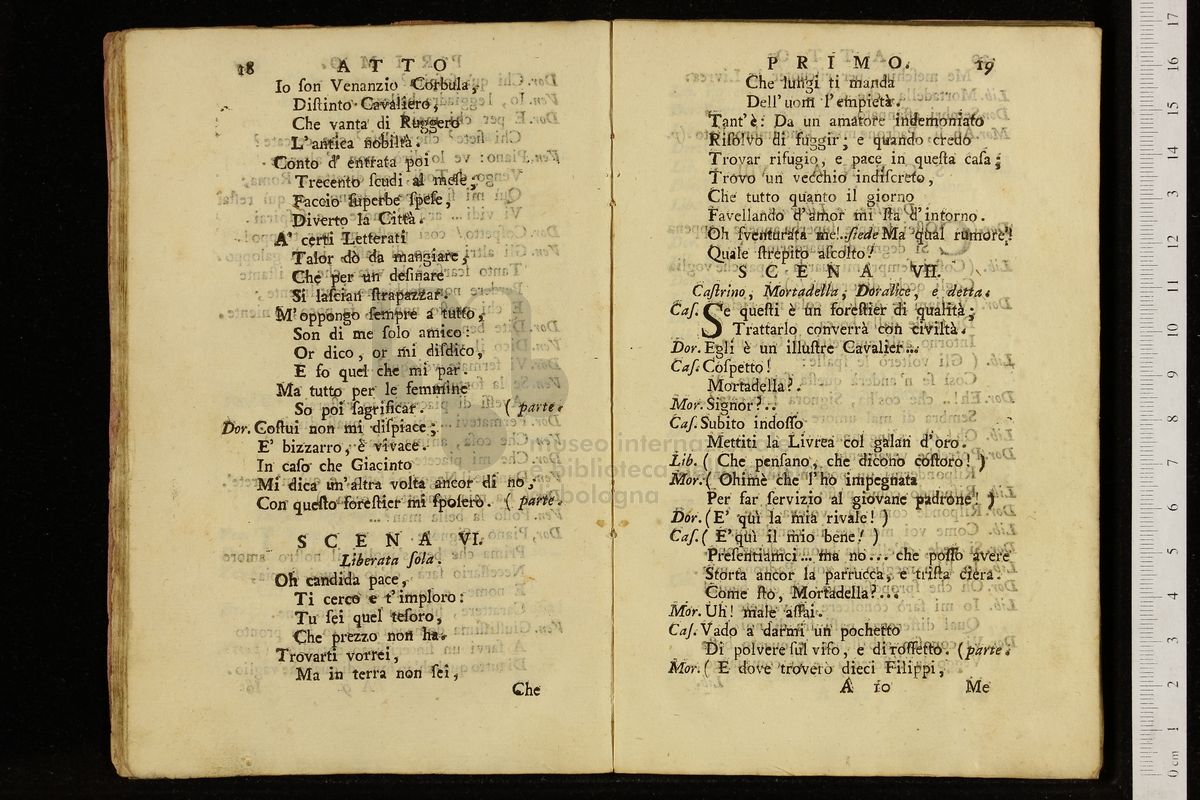 18 ATTO
Io ſon Venanzio Corbula,
Diſtinto Cavaliero,
Che vanta di Ruggero
L'antica nobiltà.
Conto d' entrata poi
Trecento ſcudi al meſe,
Faccio ſuperbe ſpeſe,
Diverto la Città.
A' certi Letterati
Talor dò da mangiare,
Che per un deſinare
Si laſcian ſtrapazzar.
M'oppongo ſempre a tutto,
Son di me ſolo amico.
Or dico, or mi diſdico,
E fo quel che mi par.
Ma tutto per le femmine
So poi ſagrificar. ( parte.
Dor. Coſtui non mi diſpiace;
E' bizzarro, è vivace.
In caſo che Giacinto
Mi dica un'altra volta ancor di nò,
Con queſto foreſtier mi ſpoſerò. ( parte.
SCENA VI.
Liberata ſola.
Oh candida pace,
Ti cerco e t'imploro:
Tu ſei quel teſoro,
Che prezzo non ha.
Trovarti vorrei,
Ma in terra non ſei,
Che
PRIMO. 19
Che lungi ti manda
Dell'uom l'empietà.
Tant'è: Da un amatore indemoniato
Riſolvo di fuggir, e quando credo
Trovar rifugio, e pace in queſta caſa;
Trovo un vecchio indiſcreto,
Che tutto quanto il giorno
Favellando d'amor mi ſta d'intorno.
Oh ſventurata me...ſiede Ma qual rumore!
Quale ſtrepito aſcolto?
SCENA VII.
Caſtrino, Mortadella, Doralice, e detta.
Caſ. Se queſti è un foreſtier di qualità;
Trattarlo converrà con civiltà.
Dor. Egli è un illuſtre Cavalier...
Caſ. Coſpetto!
Mortadella?.
Mor. Signor?..
Caſ. Subito indoſſo
Mettiti la Livrea col galan d'oro.
Lib. ( Che penſano, che dicono coſtoro! )
Mor. ( Ohimè che l'ho impegnata
Per far ſervizio al giovane padrone! )
Dor. (E' quì la mia rivale! )
Caſ. ( E' quì il mio bene! )
Preſentiamci... ma no... che poſſo avere
Storta ancor la parrucca, e triſta ciera.
Come ſto, Mortadella?...
Mor. Uh! male aſſai.
Caſ. Vado a darmi un pochetto
Di polvere ſul viſo, e di roſſetto. (parte.
Mor. ( E dove troverò dieci Filippi,
A 10 Me
museo internaz
e biblioteca
bologna
0 cm 1 2 3 4 5 6 7 8 9 10 11 12 13 14 15 16 17